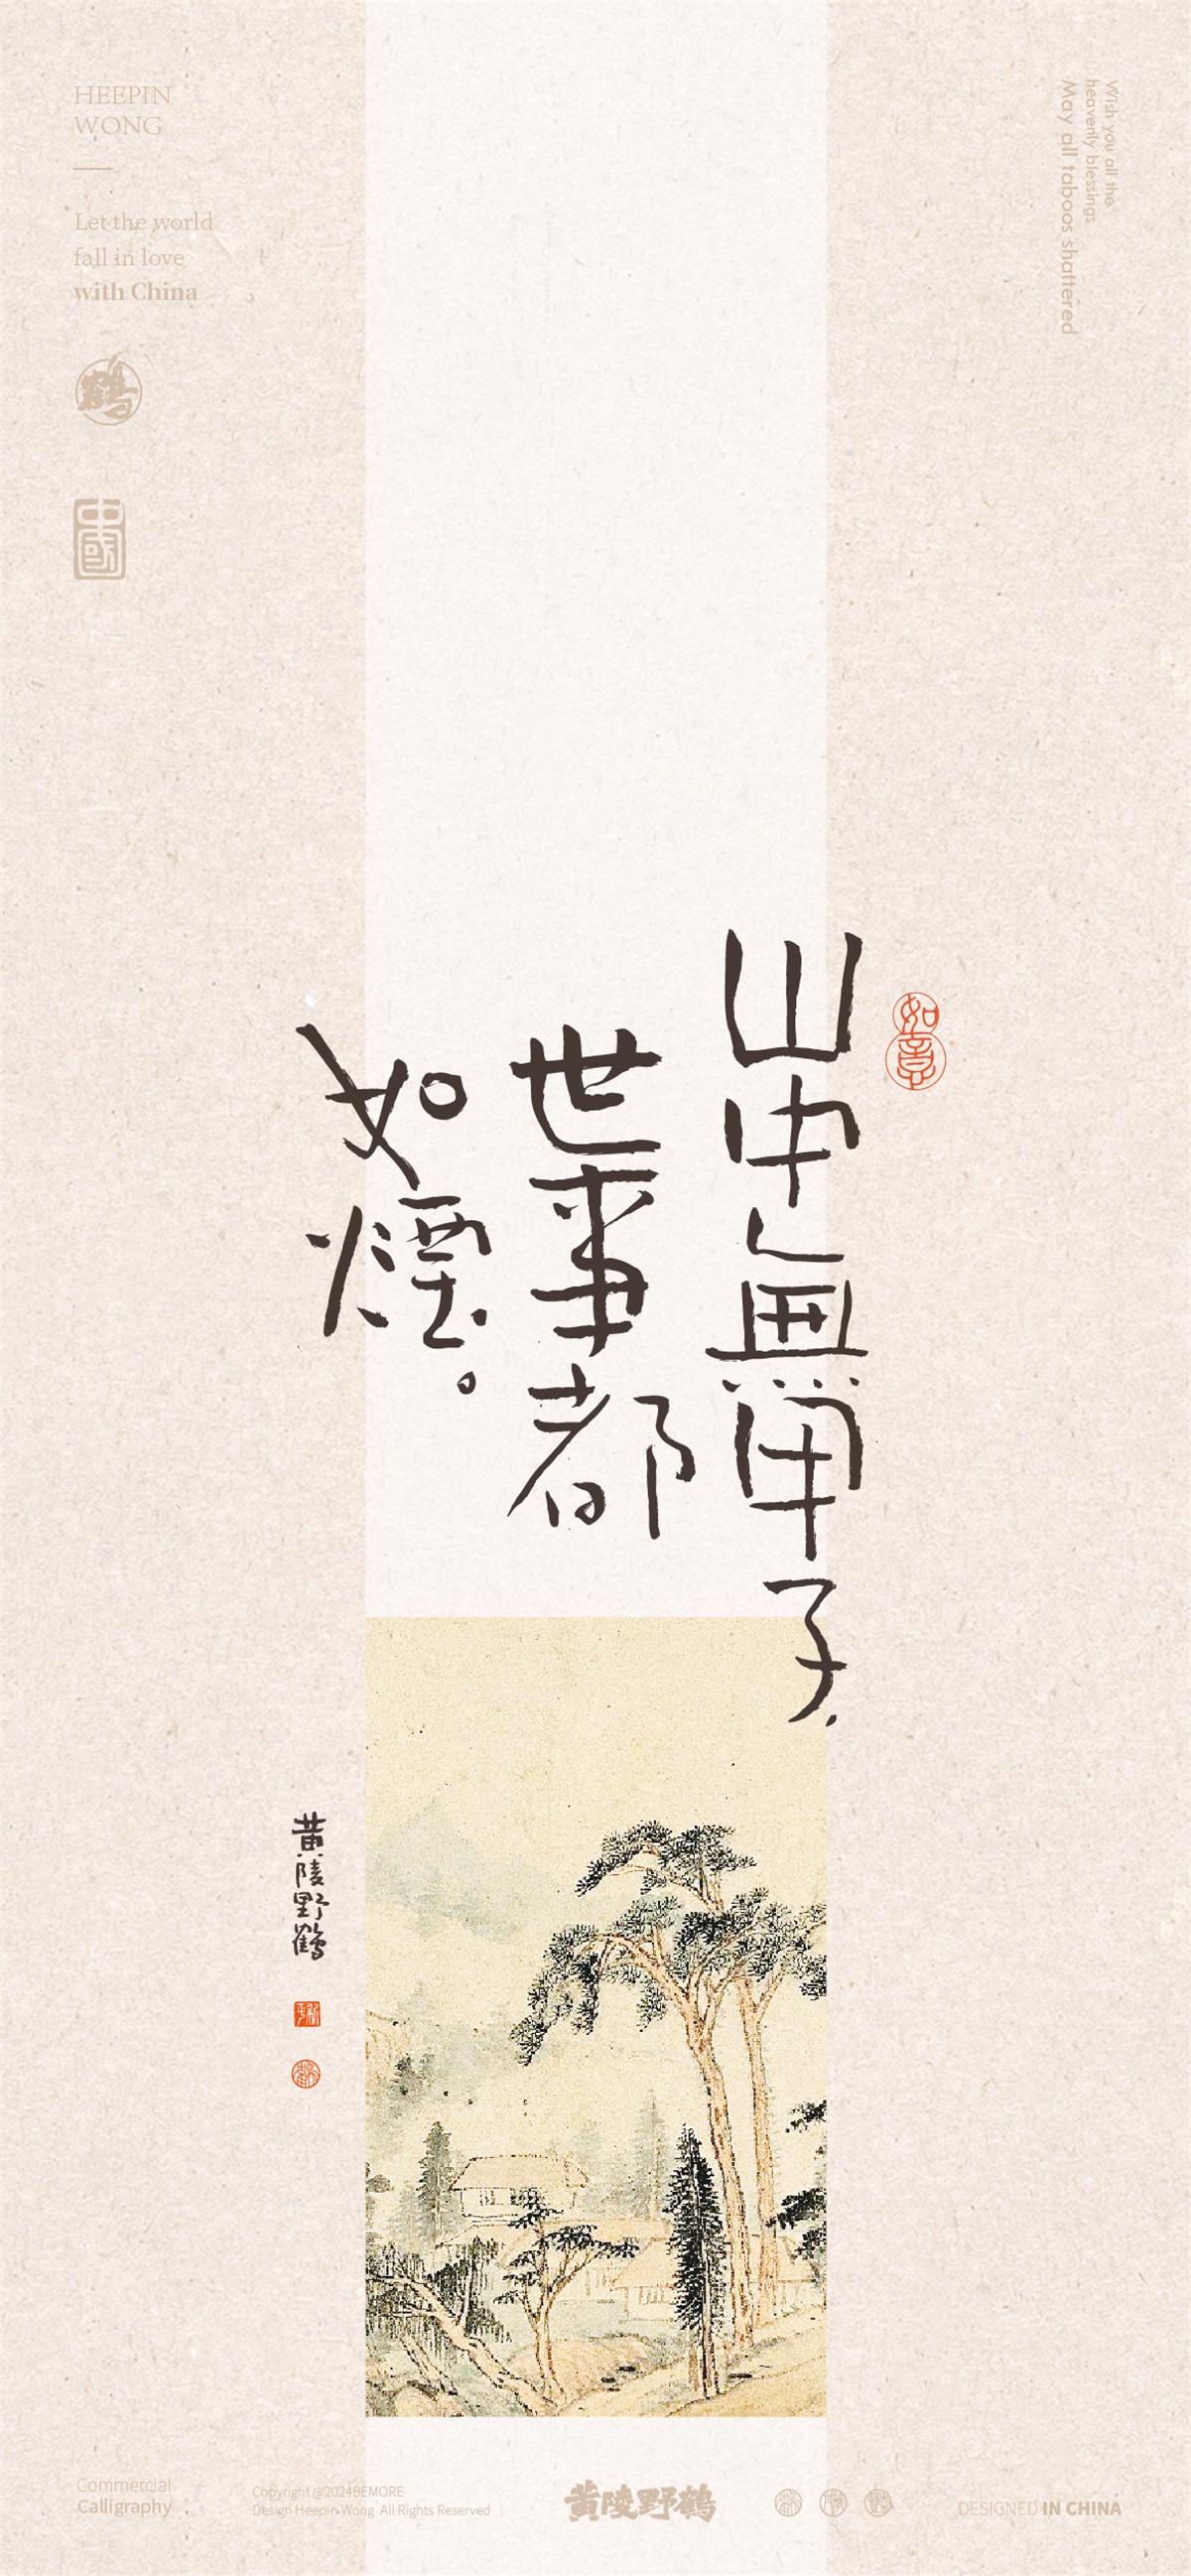 HEEPIN
WONG
Let the world
fall in love
with China
鶴
中國
Wish you all the
heavenly blessings
May all taboos shattered
如意
山中無甲子
世事都
如煙。
黃陵野鶴
Commercial
Calligraphy
Copyright @2024BEMORE
Design Heepin Wong All Rights Reserved
黄陵野鹤
DESIGNED IN CHINA